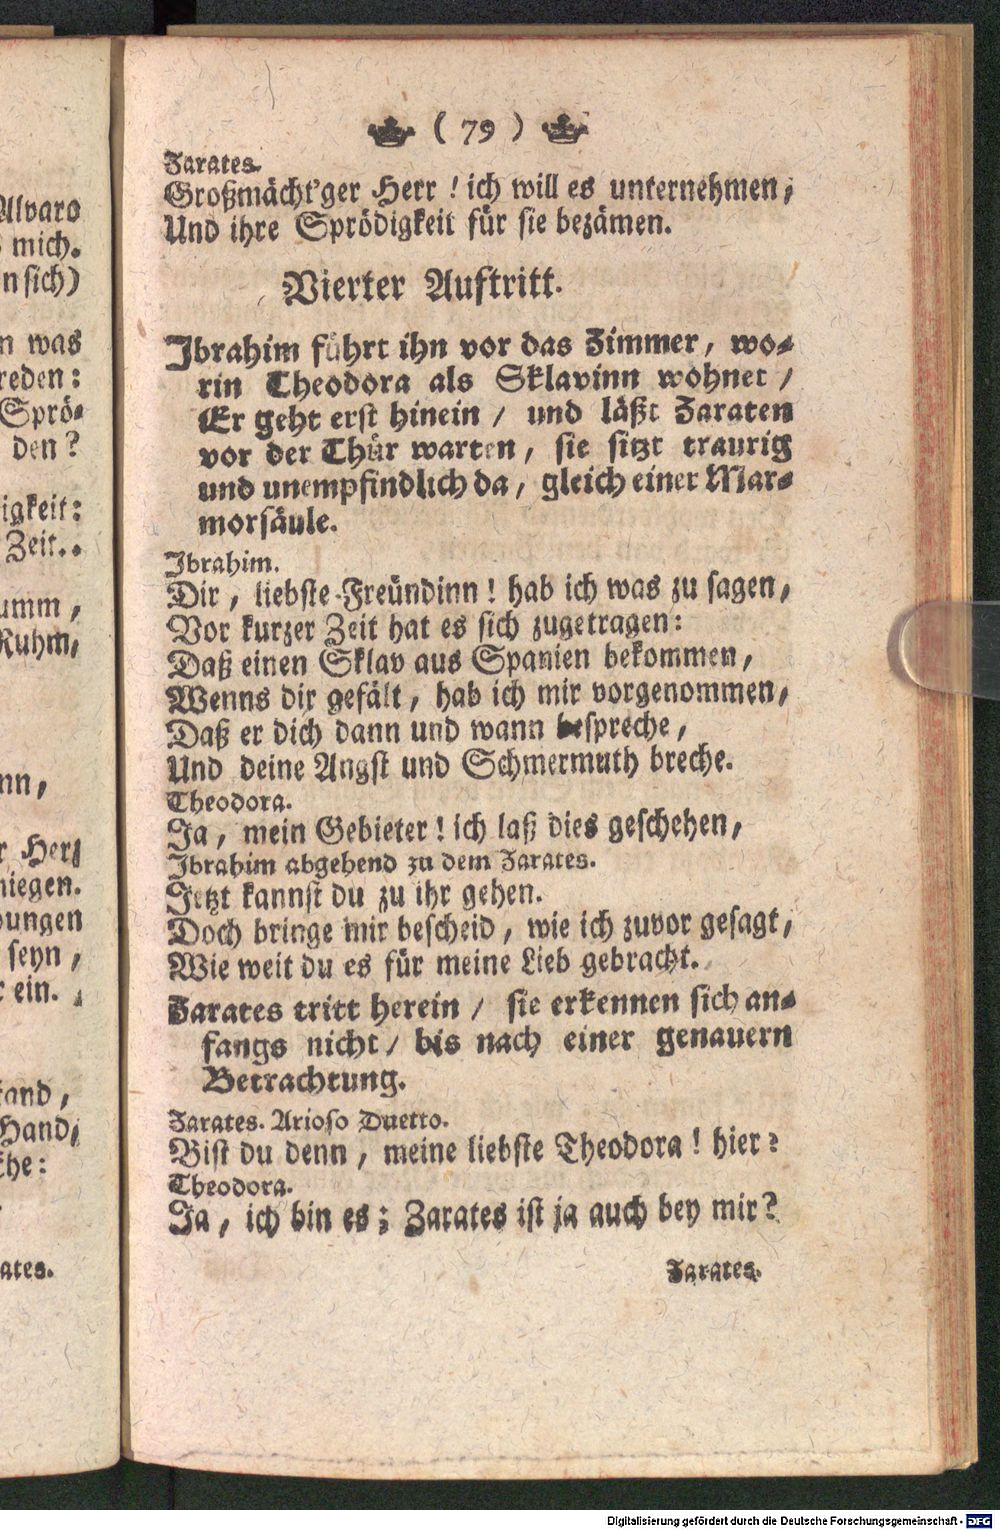 Alvaro
mich.
n sich)
n was
reden:
Sprö-
den?
igkeit:
Zeit..
umm,
Ruhm,
nn,
r Herz
niegen.
bungen
seyn,
r ein.
tand,
Hand,
che:
ates.
( 79 )
Zarates.
Großmächt'ger Herr! ich will es unternehmen,
Und ihre Sprödigkeit für sie bezämen.
Vierter Auftritt.
Ibrahim führt ihn vor das Zimmer, wo-
rin Theodora als Sklavinn wohnet /
Er geht erst hinein / und läßt Zaraten
vor der Thür warten, sie sitzt traurig
und unempfindlich da, gleich einer Mar-
morsäule.
Ibrahim.
Dir, liebste Freündinn! hab ich was zu sagen,
Vor kurzer Zeit hat es sich zugetragen:
Daß einen Sklav aus Spanien bekommen,
Wenns dir gefält, hab ich mir vorgenommen,
Daß er dich dann und wann bespreche,
Und deine Angst und Schmermuth breche.
Theodora.
Ja, mein Gebieter! ich laß dies geschehen,
Ibrahim abgehend zu dem Zarates.
Jetzt kannst du zu ihr gehen.
Doch bringe mir bescheid, wie ich zuvor gesagt,
Wie weit du es für meine Lieb gebracht.
Zarates tritt herein / sie erkennen sich an-
fangs nicht / bis nach einer genauern
Betrachtung.
Zarates. Arioso Duetto.
Bist du denn, meine liebste Theodora! hier?
Theodora.
Ja, ich bin es; Zarates ist ja auch bey mir?
Zarates.
Digitalisierung gefördert durch die Deutsche Forschungsgemeinschaft - DFG